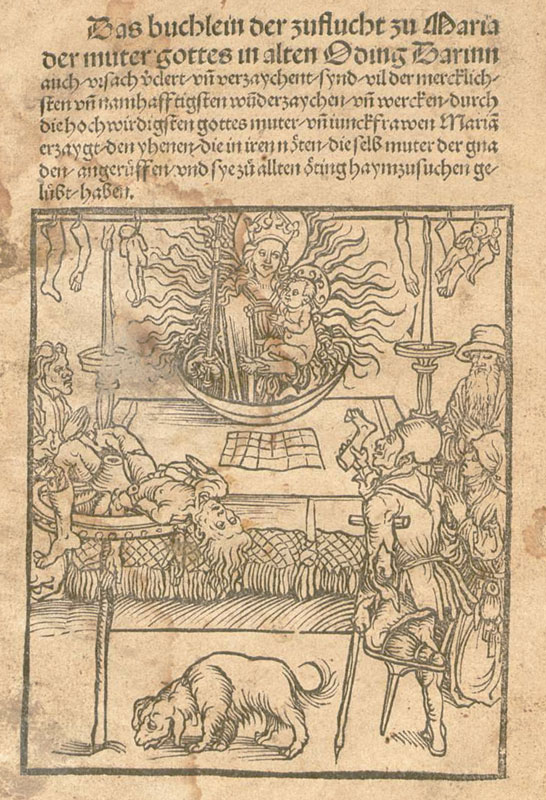 Das buchlein der zuflucht zu Maria
der muter gottes in alten Oding Darinn
auch vrsach vclert vn̄ verzaychent synd vil der mercklich⸗
sten vn̄ namhafftigsten wūderzaychen vn̄ wercken durch
die hoch wirdigsten gottes muter vn̄ iunckfrawen Mariā
erzaygt den yhenen die in iren nöten die selb muter der gna
den angerůffen vnd sye zů allten öting haymzusuchen ge⸗
lübt haben.